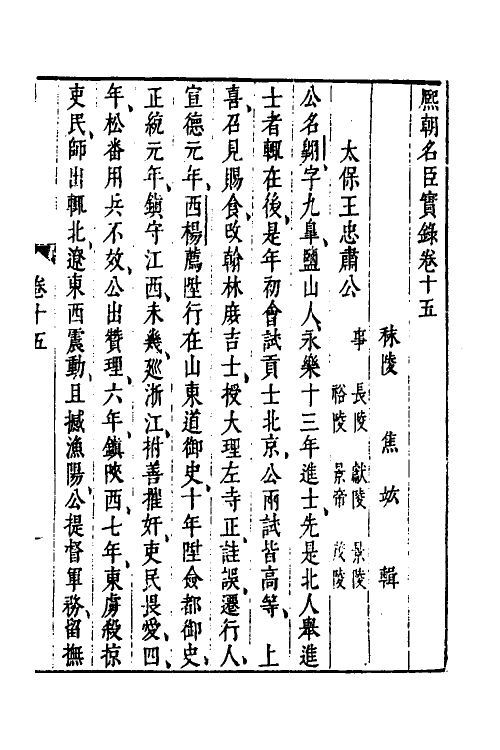 熈朝名臣實錄卷十五
秣陵 焦竑 輯
太保王忠肅公
事 長陵 獻陵 景陵
裕陵 景帝 茂陵
公名翺字九臯鹽山人永樂十三年進士先是北人舉進
士者輒在後是年初會試貢士北京公兩試皆高等 上
喜召見賜食改翰林庶吉士授大理左寺正註誤遷行人
宣德元年西楊薦陞行在山東道御史十年陞僉都御史
正統元年鎮守江西未幾廵浙江拊善摧奸吏民畏愛四
年松番用兵不效公出贊理六年鎮陜西七年東虜殺掠
吏民師出輒北遼東西震動且撼漁陽公提督軍務留撫
卷十五